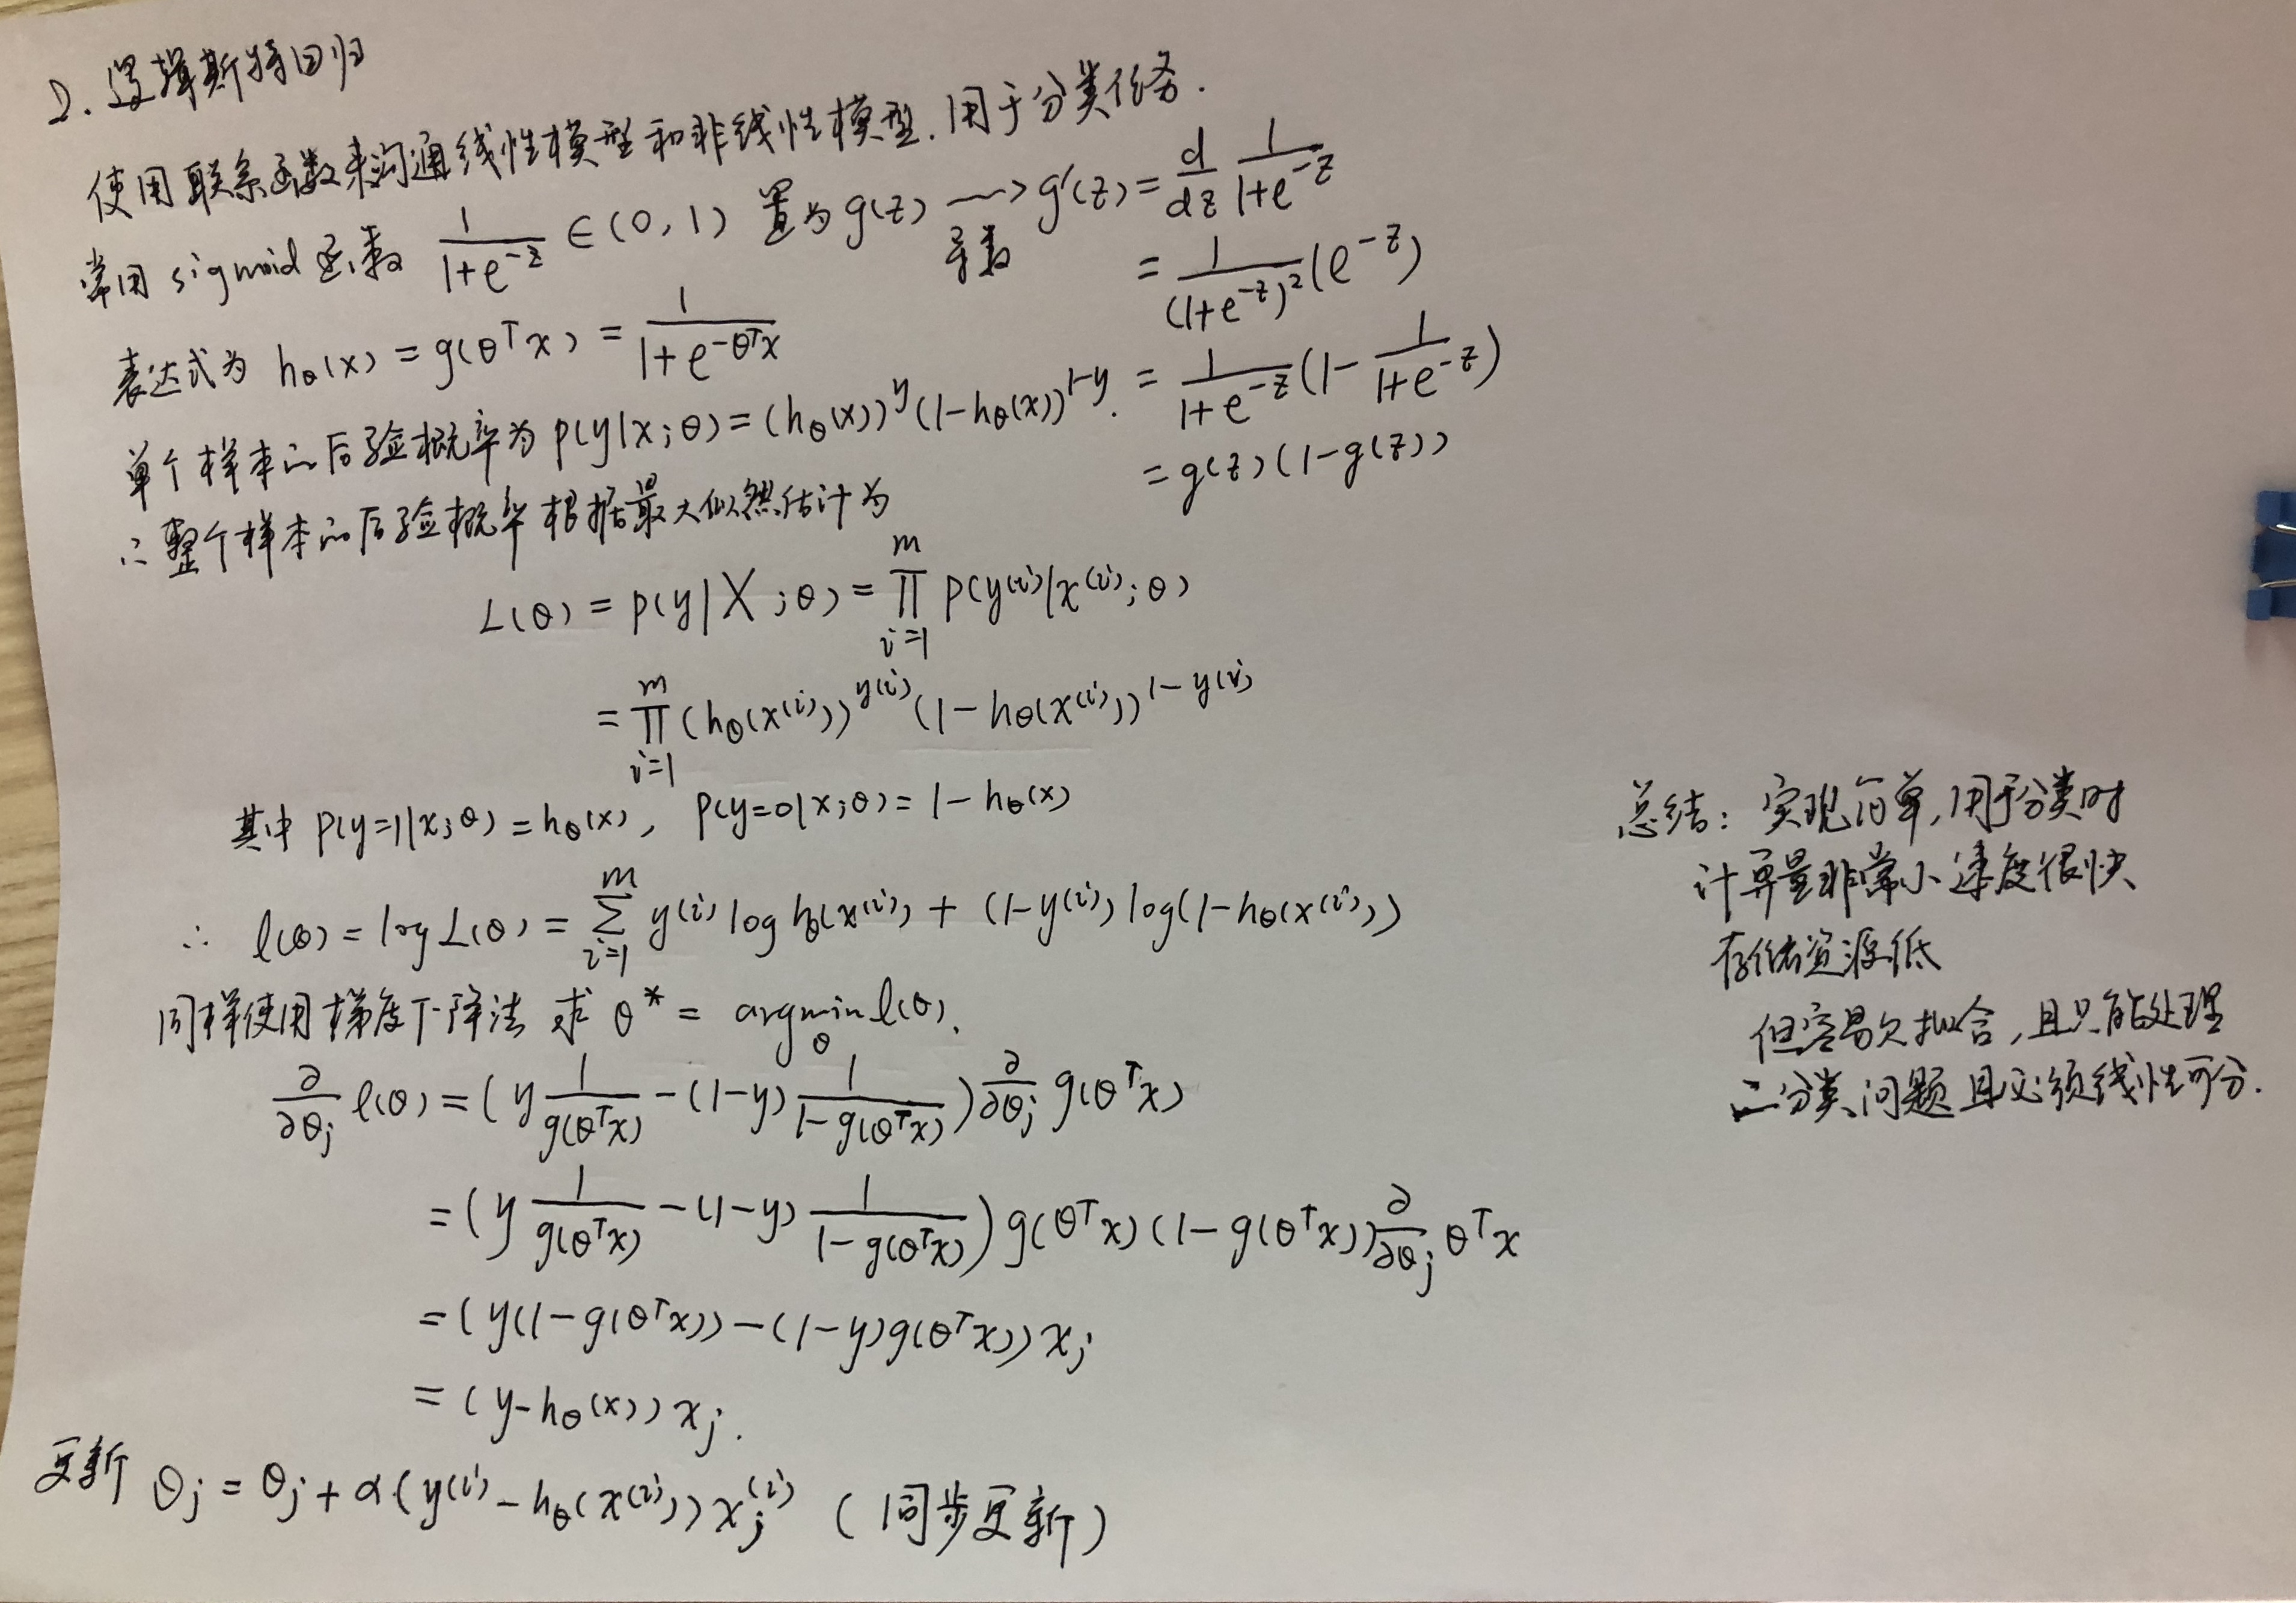 2. 逻辑斯特回归
使用联系函数来沟通线性模型和非线性模型. 用于分类任务.
常用 sigmoid 函数 1/(1+e^{-z}) ∈ (0, 1) 置为 g(z) ⟶ 导数 g'(z) = d/dz 1/(1+e^{-z})
= 1/(1+e^{-z})² (e^{-z})
= 1/(1+e^{-z}) (1 - 1/(1+e^{-z}))
= g(z)(1-g(z))
表达式为 h_θ(x) = g(θ^T x) = 1/(1+e^{-θ^T x})
单个样本的后验概率为 p(y|x;θ) = (h_θ(x))^y (1-h_θ(x))^{1-y}.
∴ 整个样本的后验概率根据最大似然估计为
L(θ) = p(y|X;θ) = ∏_{i=1}^{m} p(y^{(i)}|x^{(i)};θ)
= ∏_{i=1}^{m} (h_θ(x^{(i)}))^{y^{(i)}} (1-h_θ(x^{(i)}))^{1-y^{(i)}}
其中 p(y=1|x;θ) = h_θ(x), p(y=0|x;θ) = 1-h_θ(x)
∴ l(θ) = log L(θ) = ∑_{i=1}^{m} y^{(i)} log h_θ(x^{(i)}) + (1-y^{(i)}) log(1-h_θ(x^{(i)}))
同样使用梯度下降法 求 θ* = argmin_θ l(θ).
∂/∂θ_j l(θ) = (y 1/g(θ^T x) - (1-y) 1/(1-g(θ^T x))) ∂/∂θ_j g(θ^T x)
= (y 1/g(θ^T x) - (1-y) 1/(1-g(θ^T x))) g(θ^T x)(1-g(θ^T x)) ∂/∂θ_j θ^T x
= (y(1-g(θ^T x)) - (1-y)g(θ^T x)) x_j
= (y-h_θ(x)) x_j.
更新 θ_j = θ_j + α(y^{(i)} - h_θ(x^{(i)})) x_j^{(i)} (同步更新)
总结: 实现简单, 用于分类时
计算量非常小 速度很快
存储资源低
但容易欠拟合, 且只能处理
二分类问题 且必须线性可分.